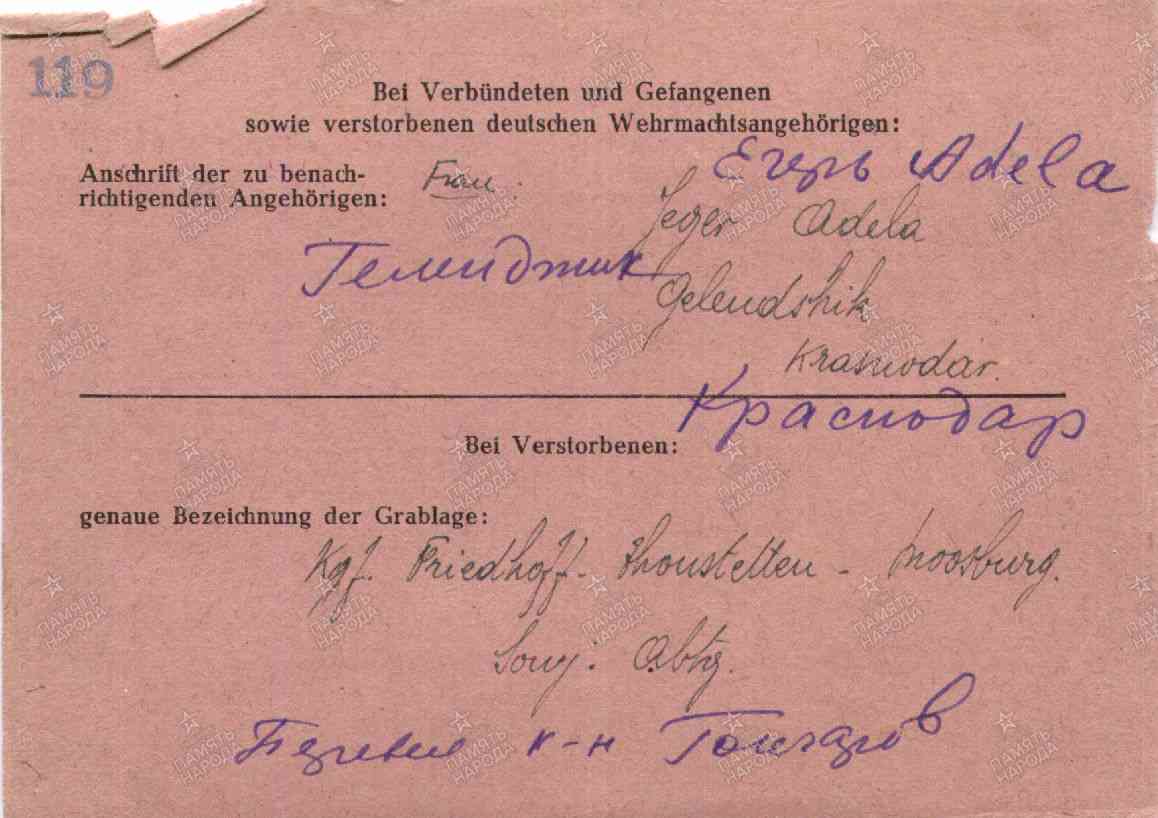 119
Bei Verbündeten und Gefangenen
sowie verstorbenen deutschen Wehrmachtsangehörigen:
Anschrift der zu benach-
richtigenden Angehörigen:
Frau
Егерь Adela
Jeger Adela
Геленджик
Gelendshik
Krasnodar.
Краснодар
Bei Verstorbenen:
genaue Bezeichnung der Grablage:
Kgf. Friedhoff. Thonstetten - Moosburg.
Sowj. Abtg.
к-н Гончаров
ПАМЯТЬ НАРОДА